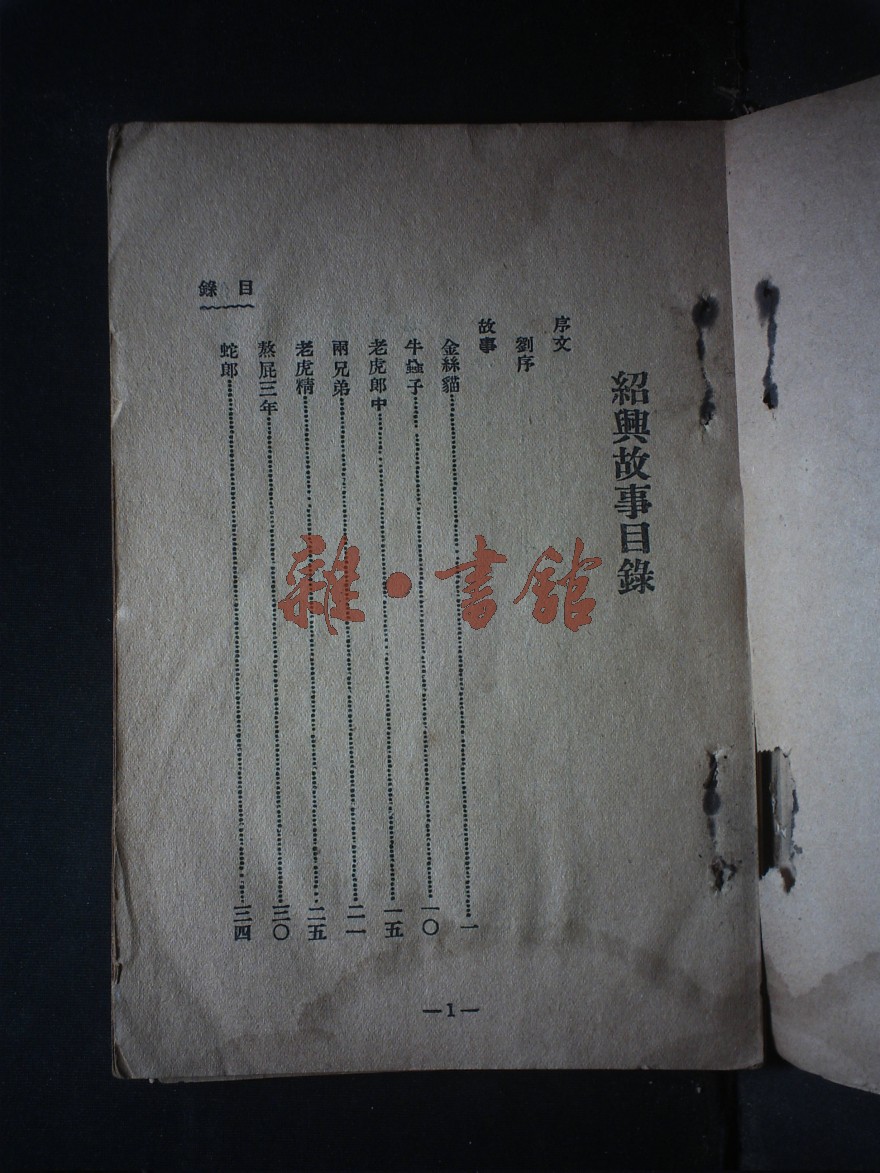 紹興故事目錄
序文
劉序
故事
金絲貓……一
牛蝨子……一〇
老虎郎中……一五
兩兄弟……二一
老虎精……二五
熬屁三年……三〇
蛇郎……三四
目錄
—1—
雜·書館